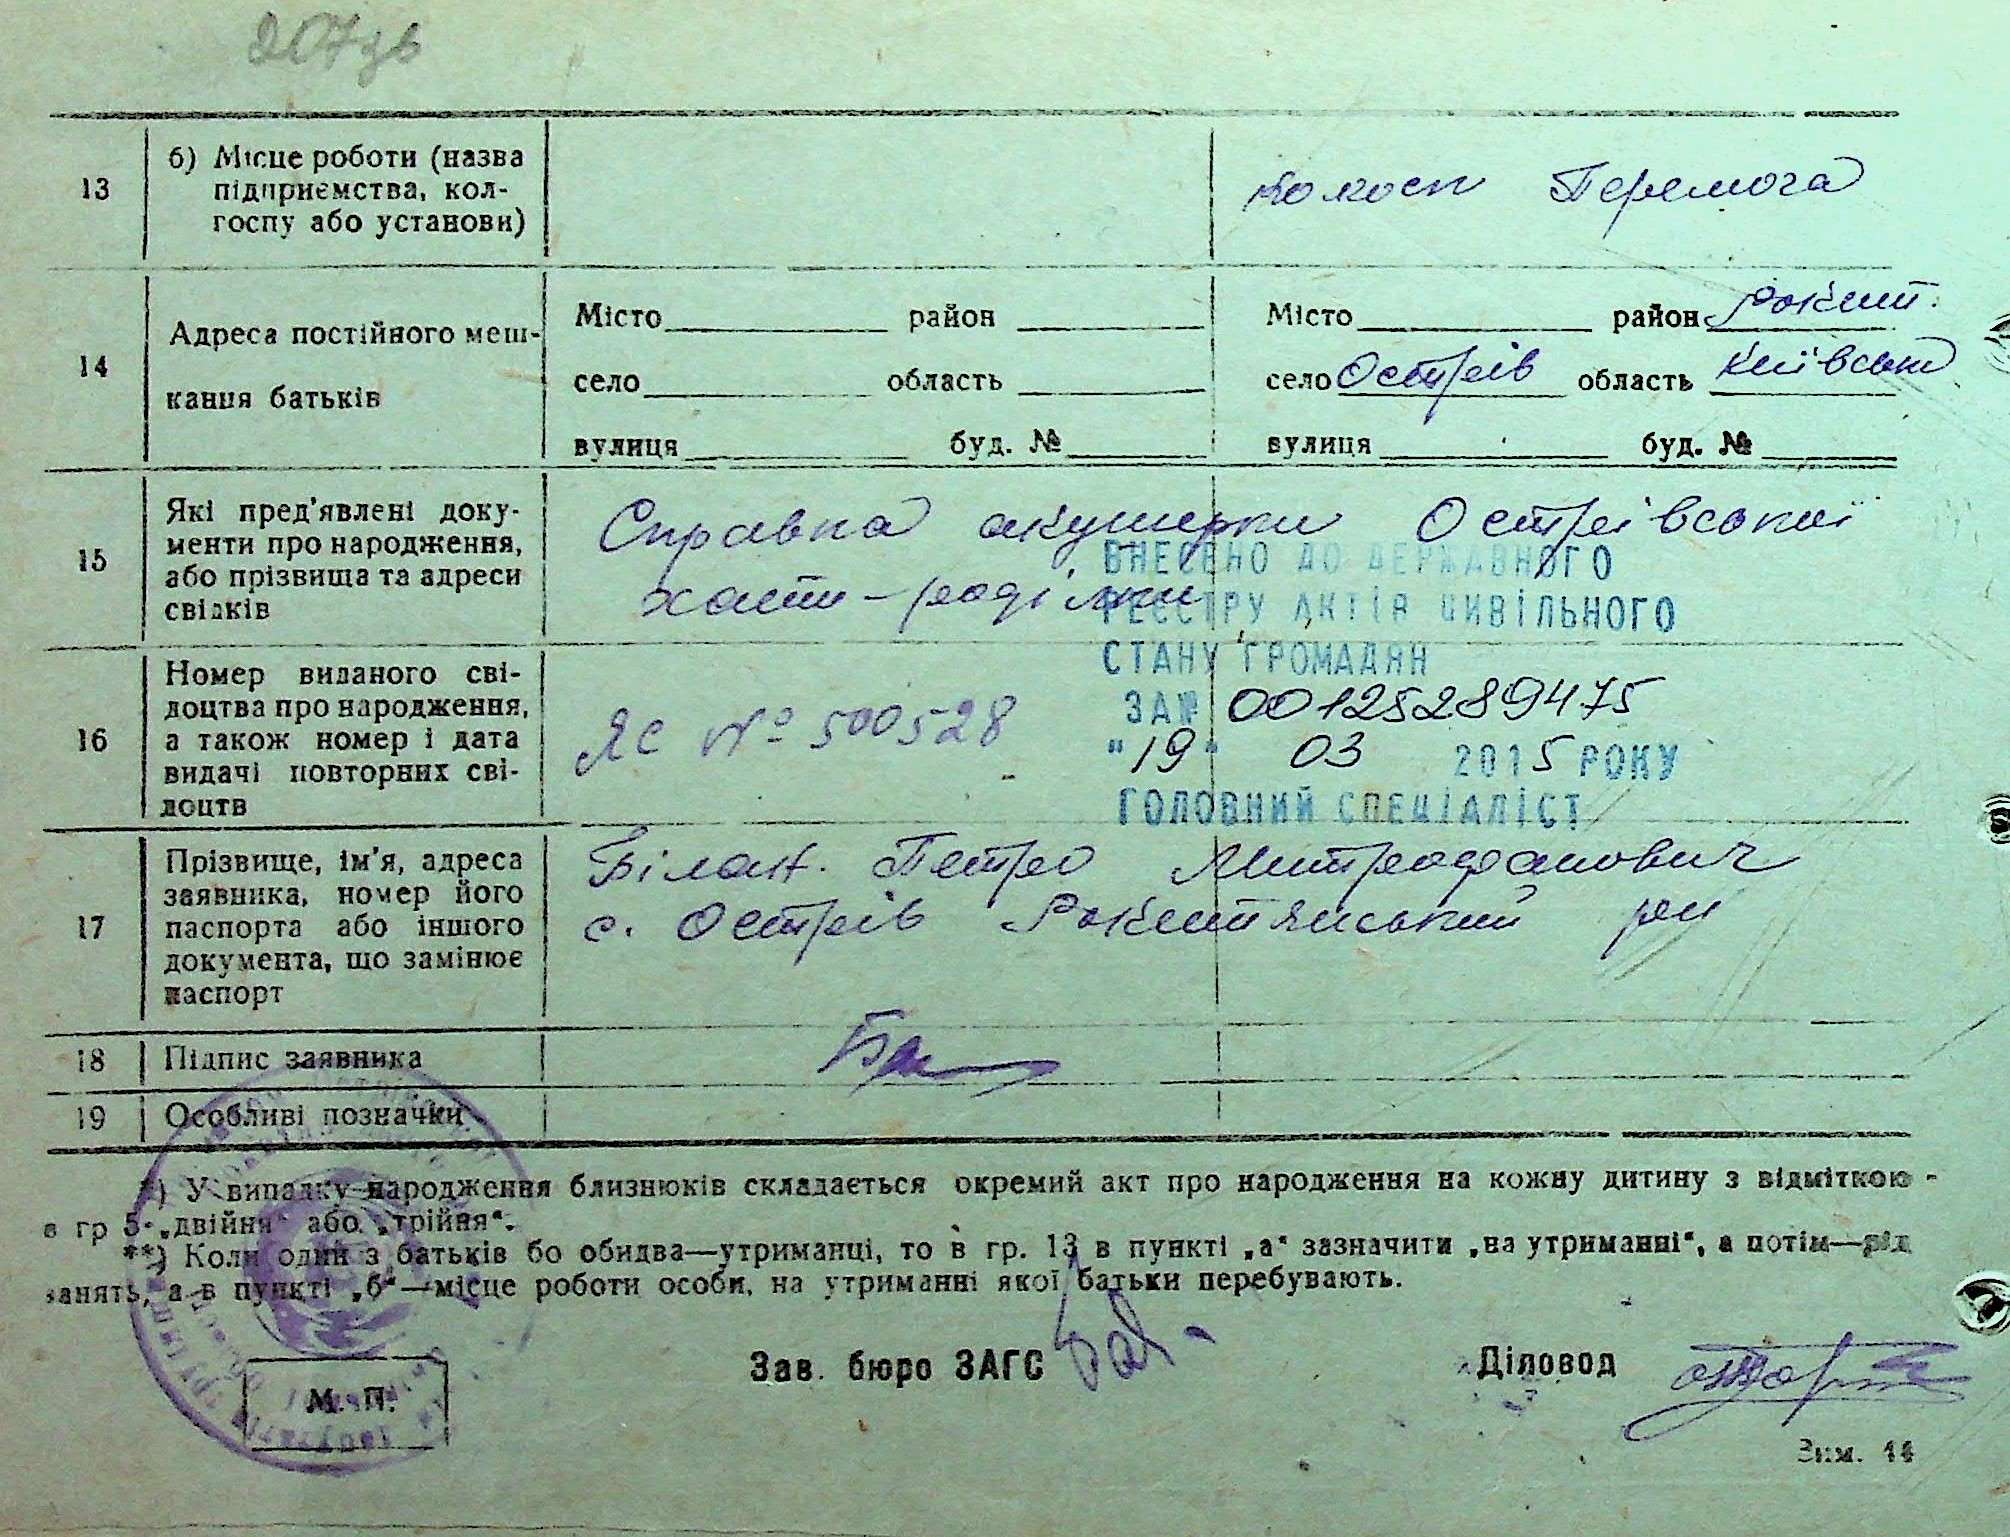 207 зв
13
б) Місце роботи (назва
підприємства, кол-
госпу або установи)
Колгосп Перемога
14
Адреса постійного меш-
кання батьків
Місто район
село область
вулиця буд. №
Місто район Рокит.
село Острів область Київська
вулиця буд. №
15
Які пред'явлені доку-
менти про народження,
або прізвища та адреси
свідків
Справка акушерки Острівської
хати-родільни
ВНЕСЕНО ДО ДЕРЖАВНОГО
РЕЄСТРУ АКТІВ ЦИВІЛЬНОГО
СТАНУ ГРОМАДЯН
ЗА № 00125289475
"19" 03 2015 РОКУ
ГОЛОВНИЙ СПЕЦІАЛІСТ
16
Номер виданого сві-
доцтва про народження,
а також номер і дата
видачі повторних сві-
доцтв
ЯС № 500528
17
Прізвище, ім'я, адреса
заявника, номер його
паспорта або іншого
документа, що замінює
паспорт
Білан. Петро Митрофанович
с. Острів Рокитянський рн
18
Підпис заявника
19
Особливі позначки
*) У випадку народження близнюків складається окремий акт про народження на кожну дитину з відміткою -
в гр 5-„двійня“ або „трійня“.
**) Коли один з батьків бо обидва—утриманці, то в гр. 13 в пункті „а“ зазначити „на утриманні“, а потім—рід
занять, а в пункті „б“—місце роботи особи, на утриманні якої батьки перебувають.
Зав. бюро ЗАГС
Діловод
М. П.
Зим. 44